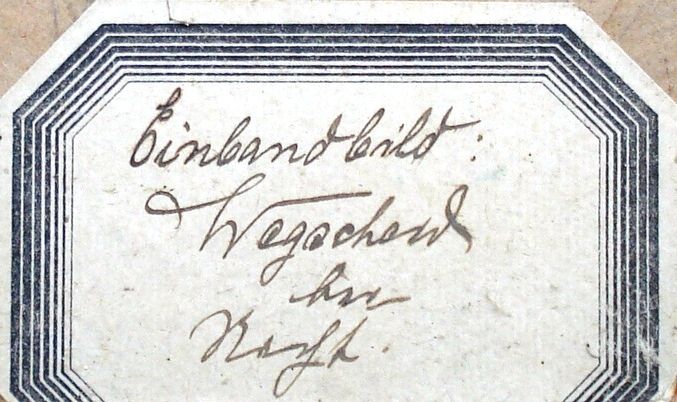 Einbandbild:
Wegscheid
bei
Nacht.